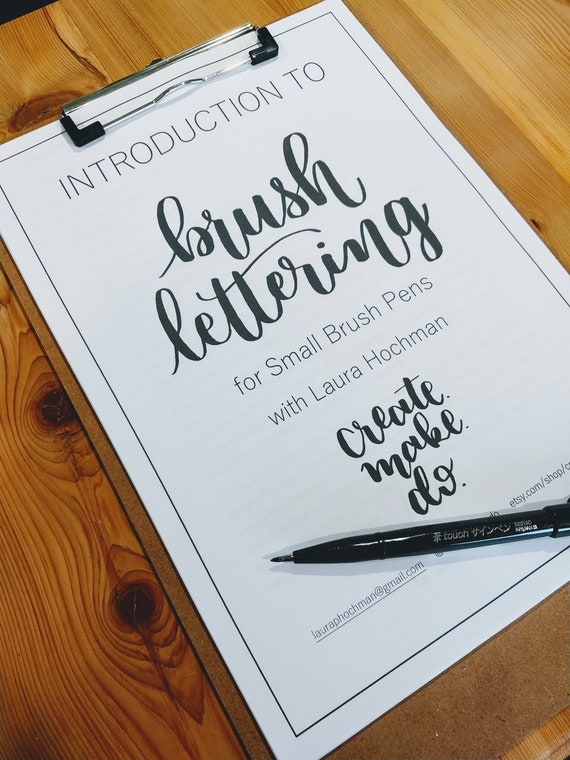 INTRODUCTION TO
brush
lettering
for Small Brush Pens
with Laura Hochman
create.
make.
do.
etsy.com/shop/
筆touch サインペン
lauraphochman@gmail.com